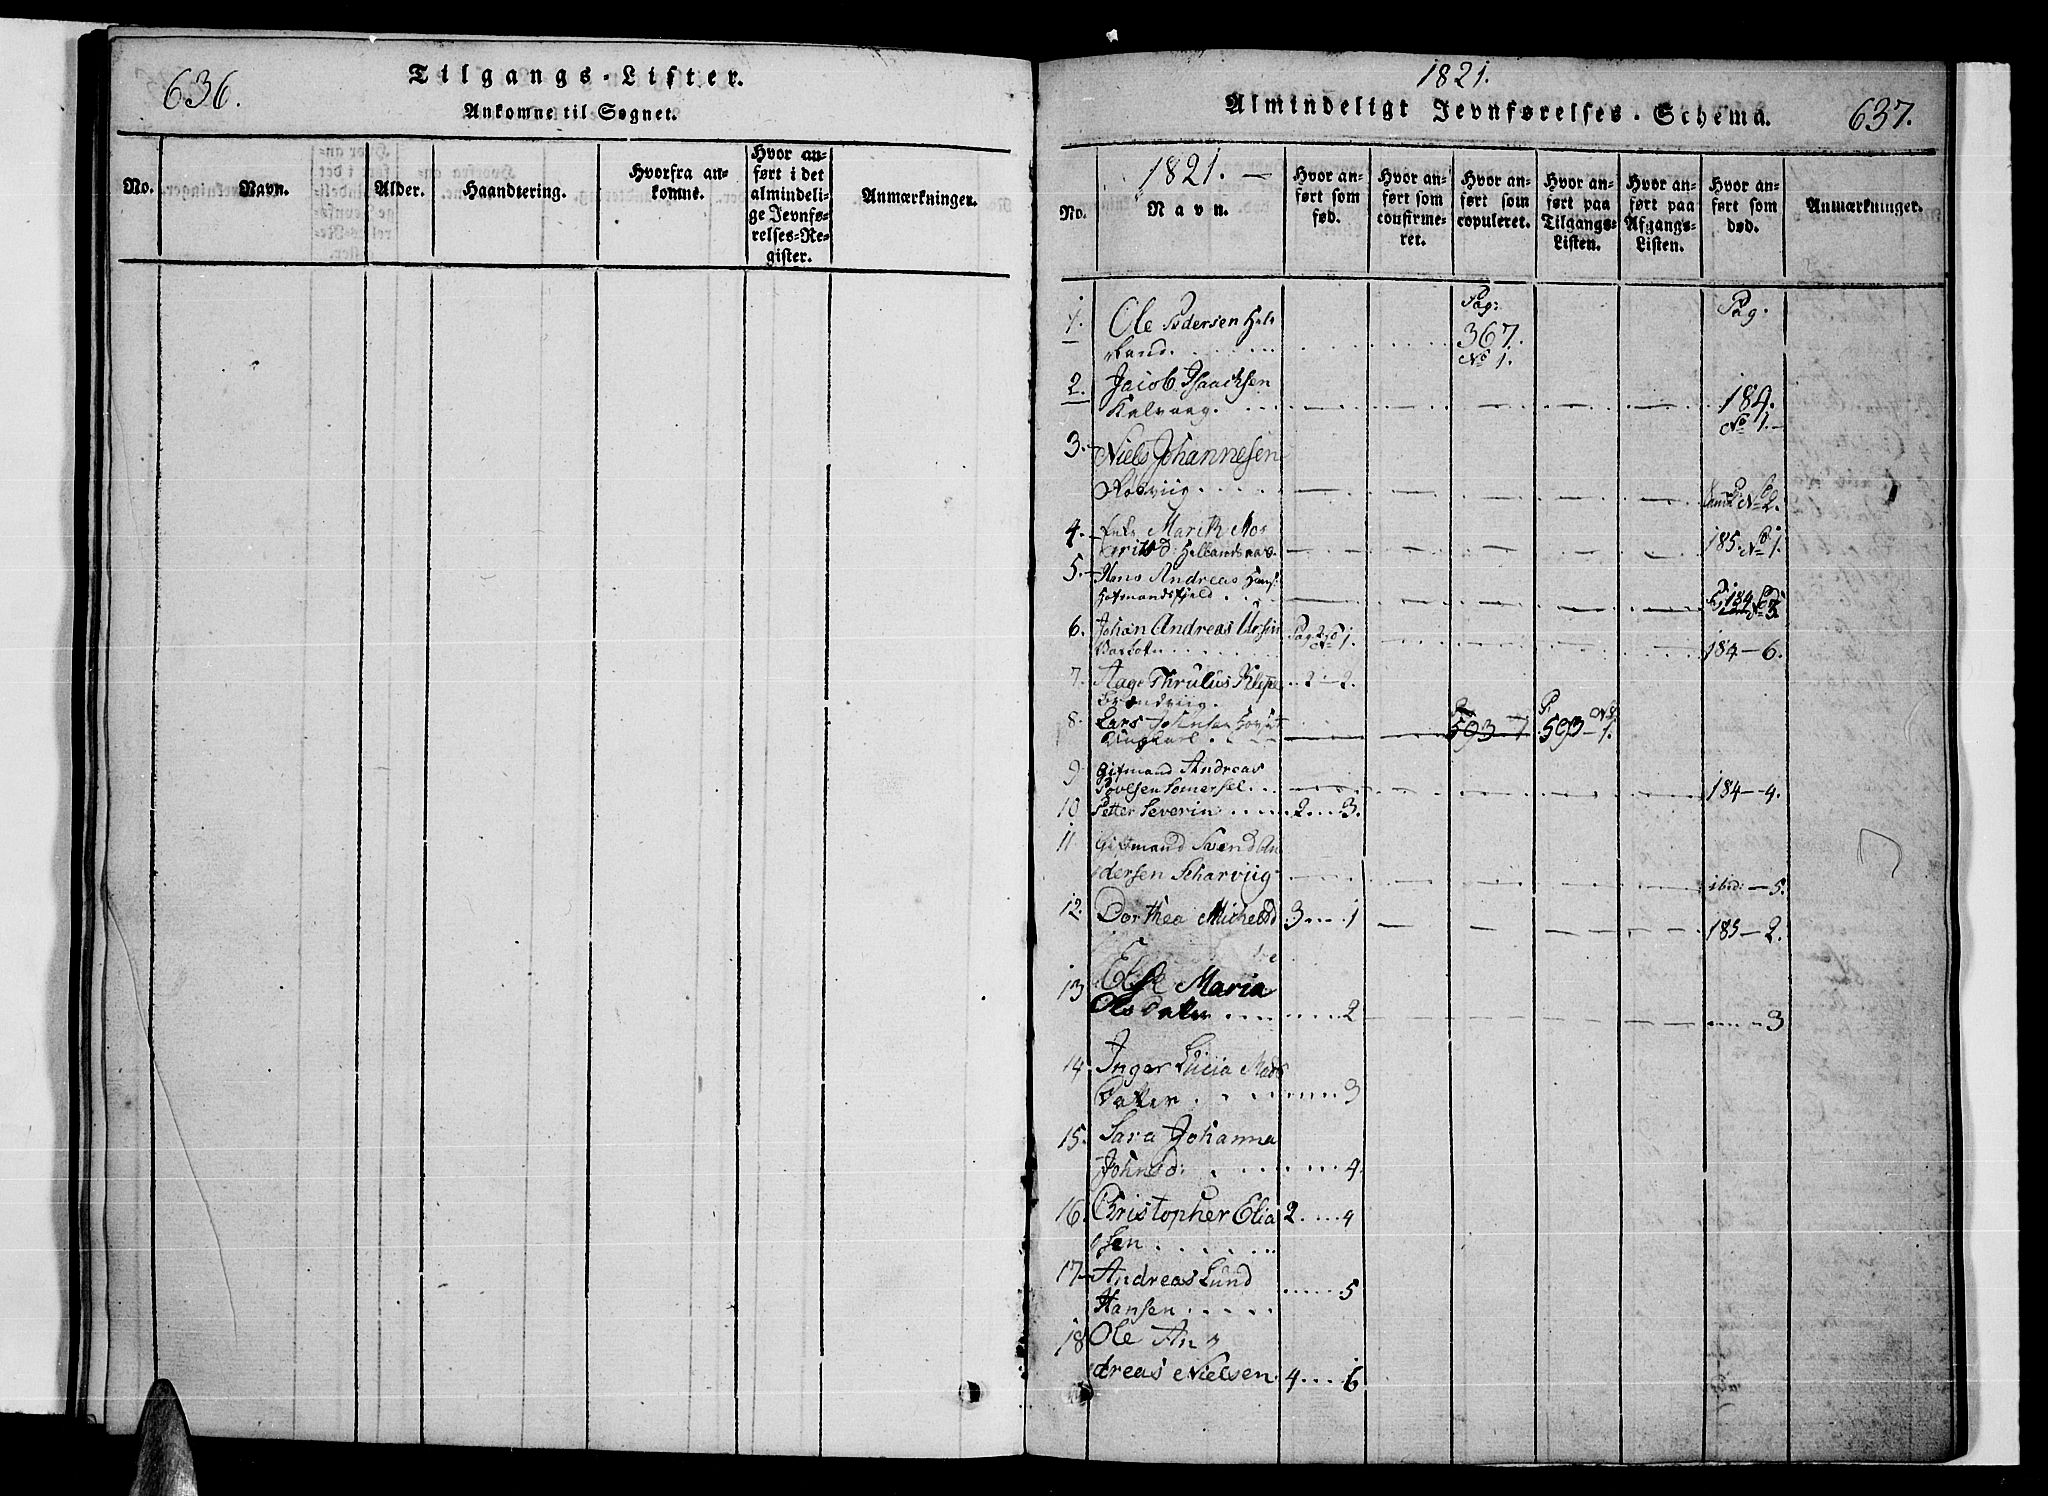 636.
Tilgangs-Lister.
Ankomne til Sognet.
No.
Navn.
Alder.
Haandtering.
Hvorfra an-
komne.
Hvor an-
ført i det
almindeli-
ge Jevnfø-
relses-Re-
gister.
Anmærkninger.
1821.
Almindeligt Jevnførelses-Schema.
637.
No.
1821. —
Navn.
Hvor an-
ført som
fød.
Hvor an-
ført som
confirme-
ret.
Hvor an-
ført som
copuleret.
Hvor an-
ført paa
Tilgangs-
Listen.
Hvor an-
ført paa
Afgangs-
Listen.
Hvor an-
ført som
død.
Anmærkninger.
Pag: Pag.
1. Ole Pedersen Hel
land. 367.
No 1.
2. Jacob Isaachsen
Kalvaag. 184.
No 1.
3. Niels Johannesen
No 2.
4. Marith Mos
185. No 1.
5. Hans Andreas Hans:
6. Johan Andreas Ursin Pag 2 No 1.
184 — 6.
7. Aage Thrulus 2 — 2.
8. Lars 593 — 1 P. 593 — No 1.
9 Giftmand Andreas
Povelsen Somersel. 184 — 4.
10 Petter Severin 2 3.
11 Giftmand Svend An
dersen Scharviig ibid: — 5.
12. Dorthea Michelsd 3 1 185 — 2.
13 Else Maria
Olsdatter 2 3
14. Inger Lucia Mads
Datter. 3
15. Sara Johanna
Johnsd: 4
16. Christopher Elia 2 4
sen
17 Andreas Lund
Hansen 5
18 Ole An
dreas Nielsen. 4 6